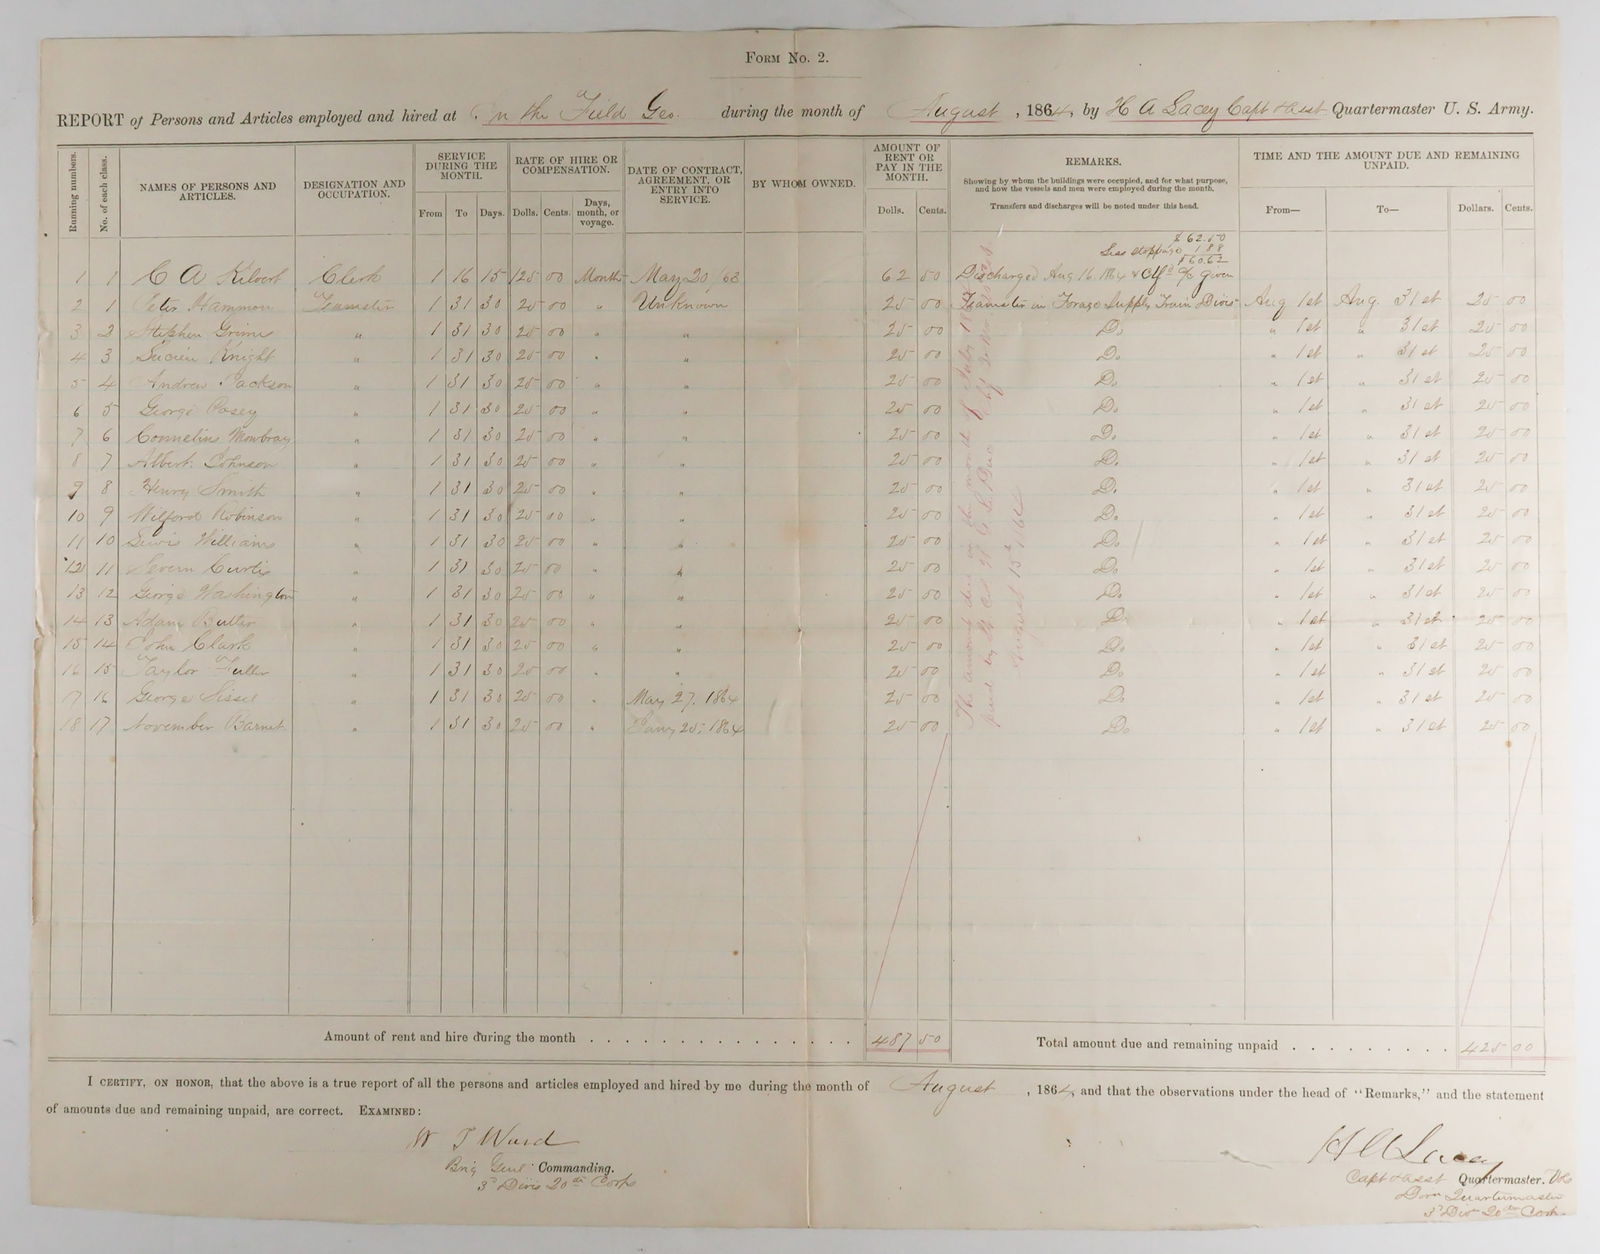 FORM No. 2.
REPORT of Persons and Articles employed and hired at In the Field Geo. during the month of August, 1864, by H A Lacey Capt & asst Quartermaster U. S. Army.
Running numbers. No. of each class. NAMES OF PERSONS AND ARTICLES. DESIGNATION AND OCCUPATION. SERVICE DURING THE MONTH. From To Days. RATE OF HIRE OR COMPENSATION. Dolls. Cents. Days, month, or voyage. DATE OF CONTRACT, AGREEMENT, OR ENTRY INTO SERVICE. BY WHOM OWNED. AMOUNT OF RENT OR PAY IN THE MONTH. Dolls. Cents. REMARKS. Showing by whom the buildings were occupied, and for what purpose, and how the vessels and men were employed during the month. Transfers and discharges will be noted under this head. TIME AND THE AMOUNT DUE AND REMAINING UNPAID. From— To— Dollars. Cents.
$62.50
Less stoppage 1.88
$60.62
1 1 C A Kilvert Clerk 1 16 15 125 00 Month May 20/63 62 50 Discharged Aug 16. 1864 & given
2 1 Peter Hammon Teamster 1 31 30 25 00 " Unknown 25 00 Teamster in Forage Supply Train Divis Aug 1st Aug. 31st 25 00
3 2 Stephen Grims " 1 31 30 25 00 " " 25 00 Do " 1st " 31st 25 00
4 3 Knight " 1 31 30 25 00 " " 25 00 Do " 1st " 31st 25 00
5 4 Andrew Jackson " 1 31 30 25 00 " " 25 00 Do " 1st " 31st 25 00
6 5 George Posey " 1 31 30 25 00 " " 25 00 Do " 1st " 31st 25 00
7 6 Cornelius Mowbray " 1 31 30 25 00 " " 25 00 Do " 1st " 31st 25 00
8 7 Albert Johnson " 1 31 30 25 00 " " 25 00 Do " 1st " 31st 25 00
9 8 Henry Smith " 1 31 30 25 00 " " 25 00 Do " 1st " 31st 25 00
10 9 Wilford Robinson " 1 31 30 25 00 " " 25 00 Do " 1st " 31st 25 00
11 10 Lewis Williams " 1 31 30 25 00 " " 25 00 Do " 1st " 31st 25 00
12 11 Severn Curtis " 1 31 30 25 00 " " 25 00 Do " 1st " 31st 25 00
13 12 George Washington " 1 31 30 25 00 " " 25 00 Do " 1st " 31st 25 00
14 13 Adam Butler " 1 31 30 25 00 " " 25 00 Do " 1st " 31st 25 00
15 14 John Clark " 1 31 30 25 00 " " 25 00 Do " 1st " 31st 25 00
16 15 Taylor Fuller " 1 31 30 25 00 " " 25 00 Do " 1st " 31st 25 00
17 16 George Sissel " 1 31 30 25 00 " May 27. 1864 25 00 Do " 1st " 31st 25 00
18 17 November Barnet " 1 31 30 25 00 " Jany 25, 1864 25 00 Do " 1st " 31st 25 00
The amount due in the month of July 1864
paid by
August 15th 1864
Amount of rent and hire during the month 487 50 Total amount due and remaining unpaid 425 00
I CERTIFY, ON HONOR, that the above is a true report of all the persons and articles employed and hired by me during the month of August, 1864, and that the observations under the head of "Remarks," and the statement
of amounts due and remaining unpaid, are correct. EXAMINED:
W T Ward
Brig Genl Commanding.
3d Divis 20th Corps
H A Lacey
Capt & asst Quartermaster. Vols
Quartermaster
3d Div 20th Corps